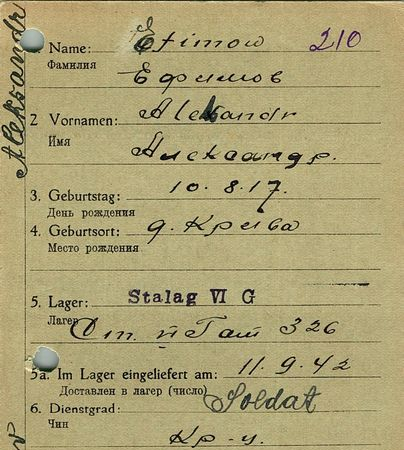 Aleksandr
1 Name: Efimow 210
Фамилия
Ефимов
2 Vornamen: Aleksandr
Имя
Александр.
3. Geburtstag: 10. 8. 17.
День рождения
4. Geburtsort: д. Крива
Место рождения
5. Lager: Stalag VI G
Лагер 326
5a. Im Lager eingeliefert am: 11. 9. 42
Доставлен в лагер (число)
6. Dienstgrad: Soldat
Чин
Кр-ц.